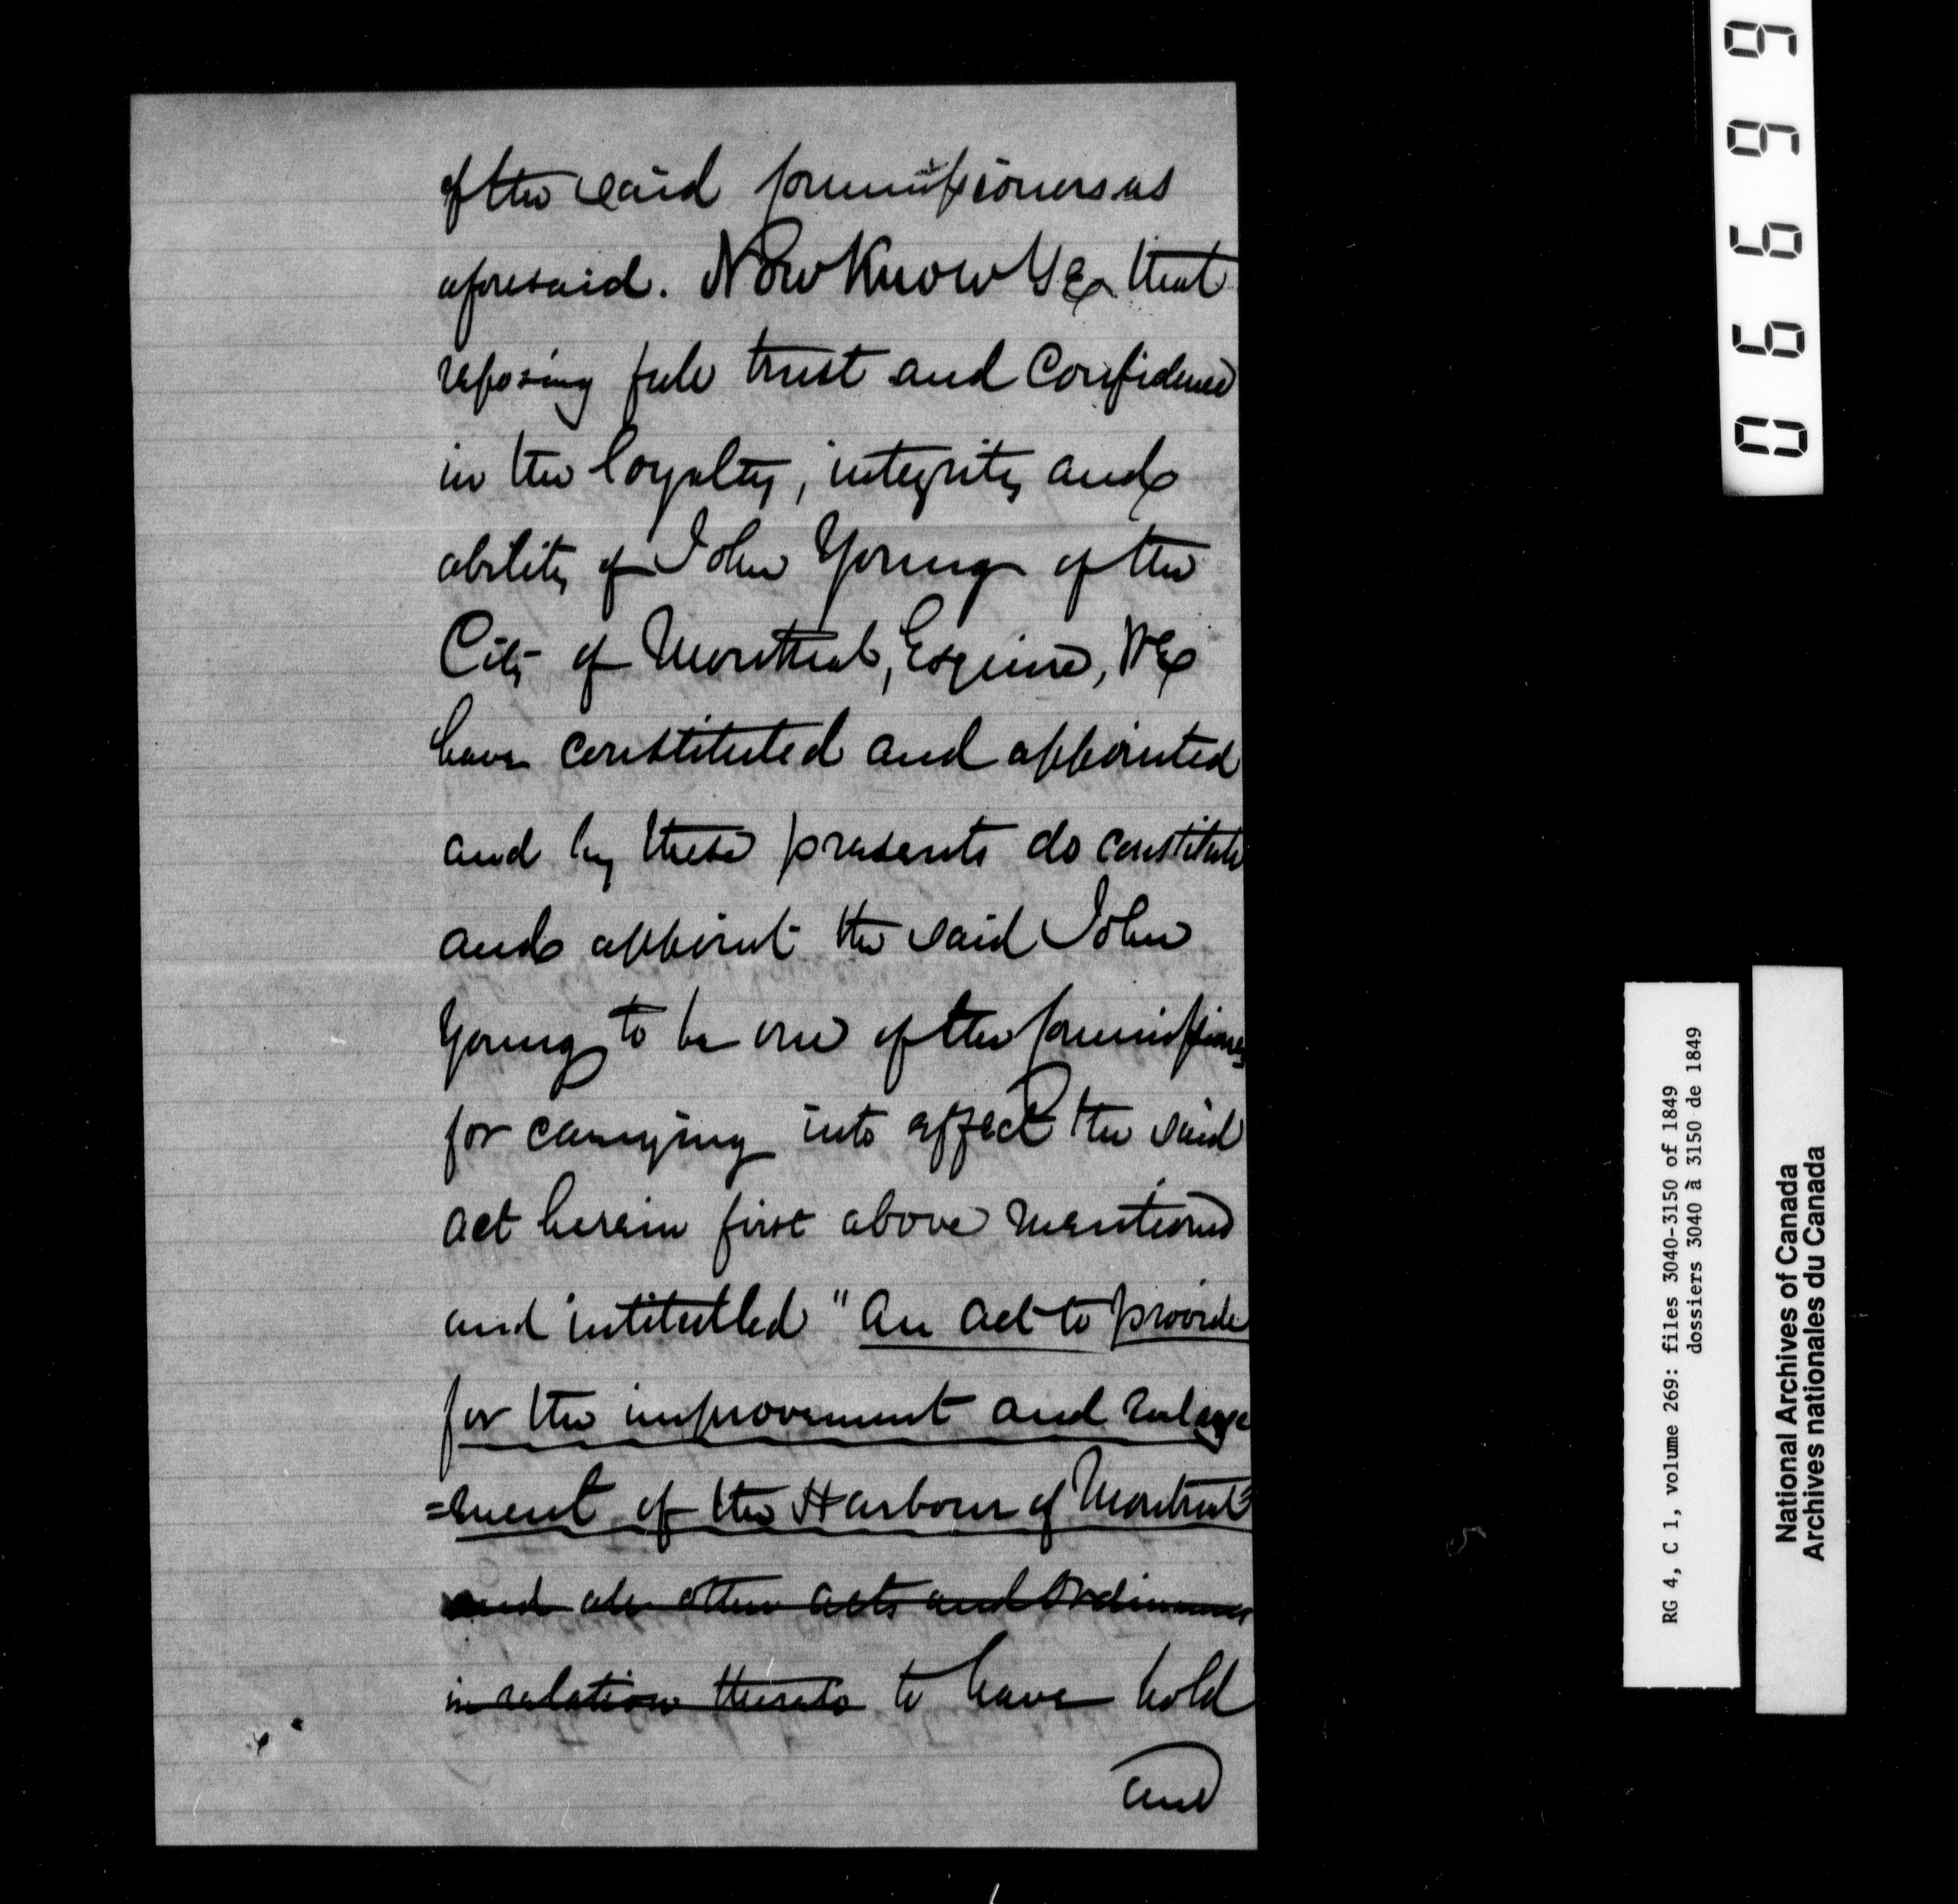 of the said Commissioners as
aforesaid. Now Know Ye that
reposing full trust and Confidence
in the loyalty, integrity and
ability of John Young of the
City of Montreal, Esquire, We
have constituted and appointed
and by these presents do constitute
and appoint the said John
Young to be one of the Commissioners
for carrying into effect the said
act herein first above mentioned
and intituled "An act to provide
for the improvement and enlarge
=ment of the Harbour of Montreal"
and all other acts and Ordinances
in relation thereto to have hold
and
06699
RG 4, C 1, volume 269: files 3040-3150 of 1849
dossiers 3040 à 3150 de 1849
National Archives of Canada
Archives nationales du Canada